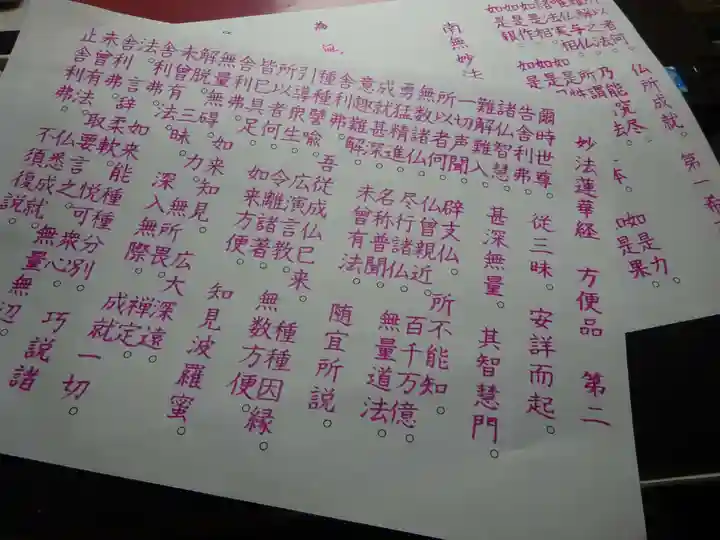 仏所成就。 第一希
唯仏与仏 乃能究尽
南無妙法
為
妙法蓮華経 方便品 第二
爾時世尊 從三昧 安詳而起。
告舎利弗
諸仏智慧 甚深無量。 其智慧門。
難解難入
一切声聞 辟支仏。 所不能知。
所以者何 仏曾親近 百千万億
無数諸仏 尽行諸仏 無量道法。
勇猛精進 名称普聞
成就甚深 未曾有法 随宜所説
意趣難解。
舎利弗 吾從成仏已来 種種因縁
種種譬喩。 広演言教 無数方便。
引導衆生 令離諸著
所以者何 如来方便 知見波羅蜜。
皆已具足
舎利弗。 如来知見 広大深遠
無量無碍 力。無所畏。 禅定。
解脱。三昧。 深入無際 成就
未曾有法
舎利弗。 如来能 種種分別 巧説諸
法 言辞柔軟 悦可衆心
舎利弗。 取要言之 無量無辺
未曾有法 仏悉成就。
止舎利弗。 不須復説